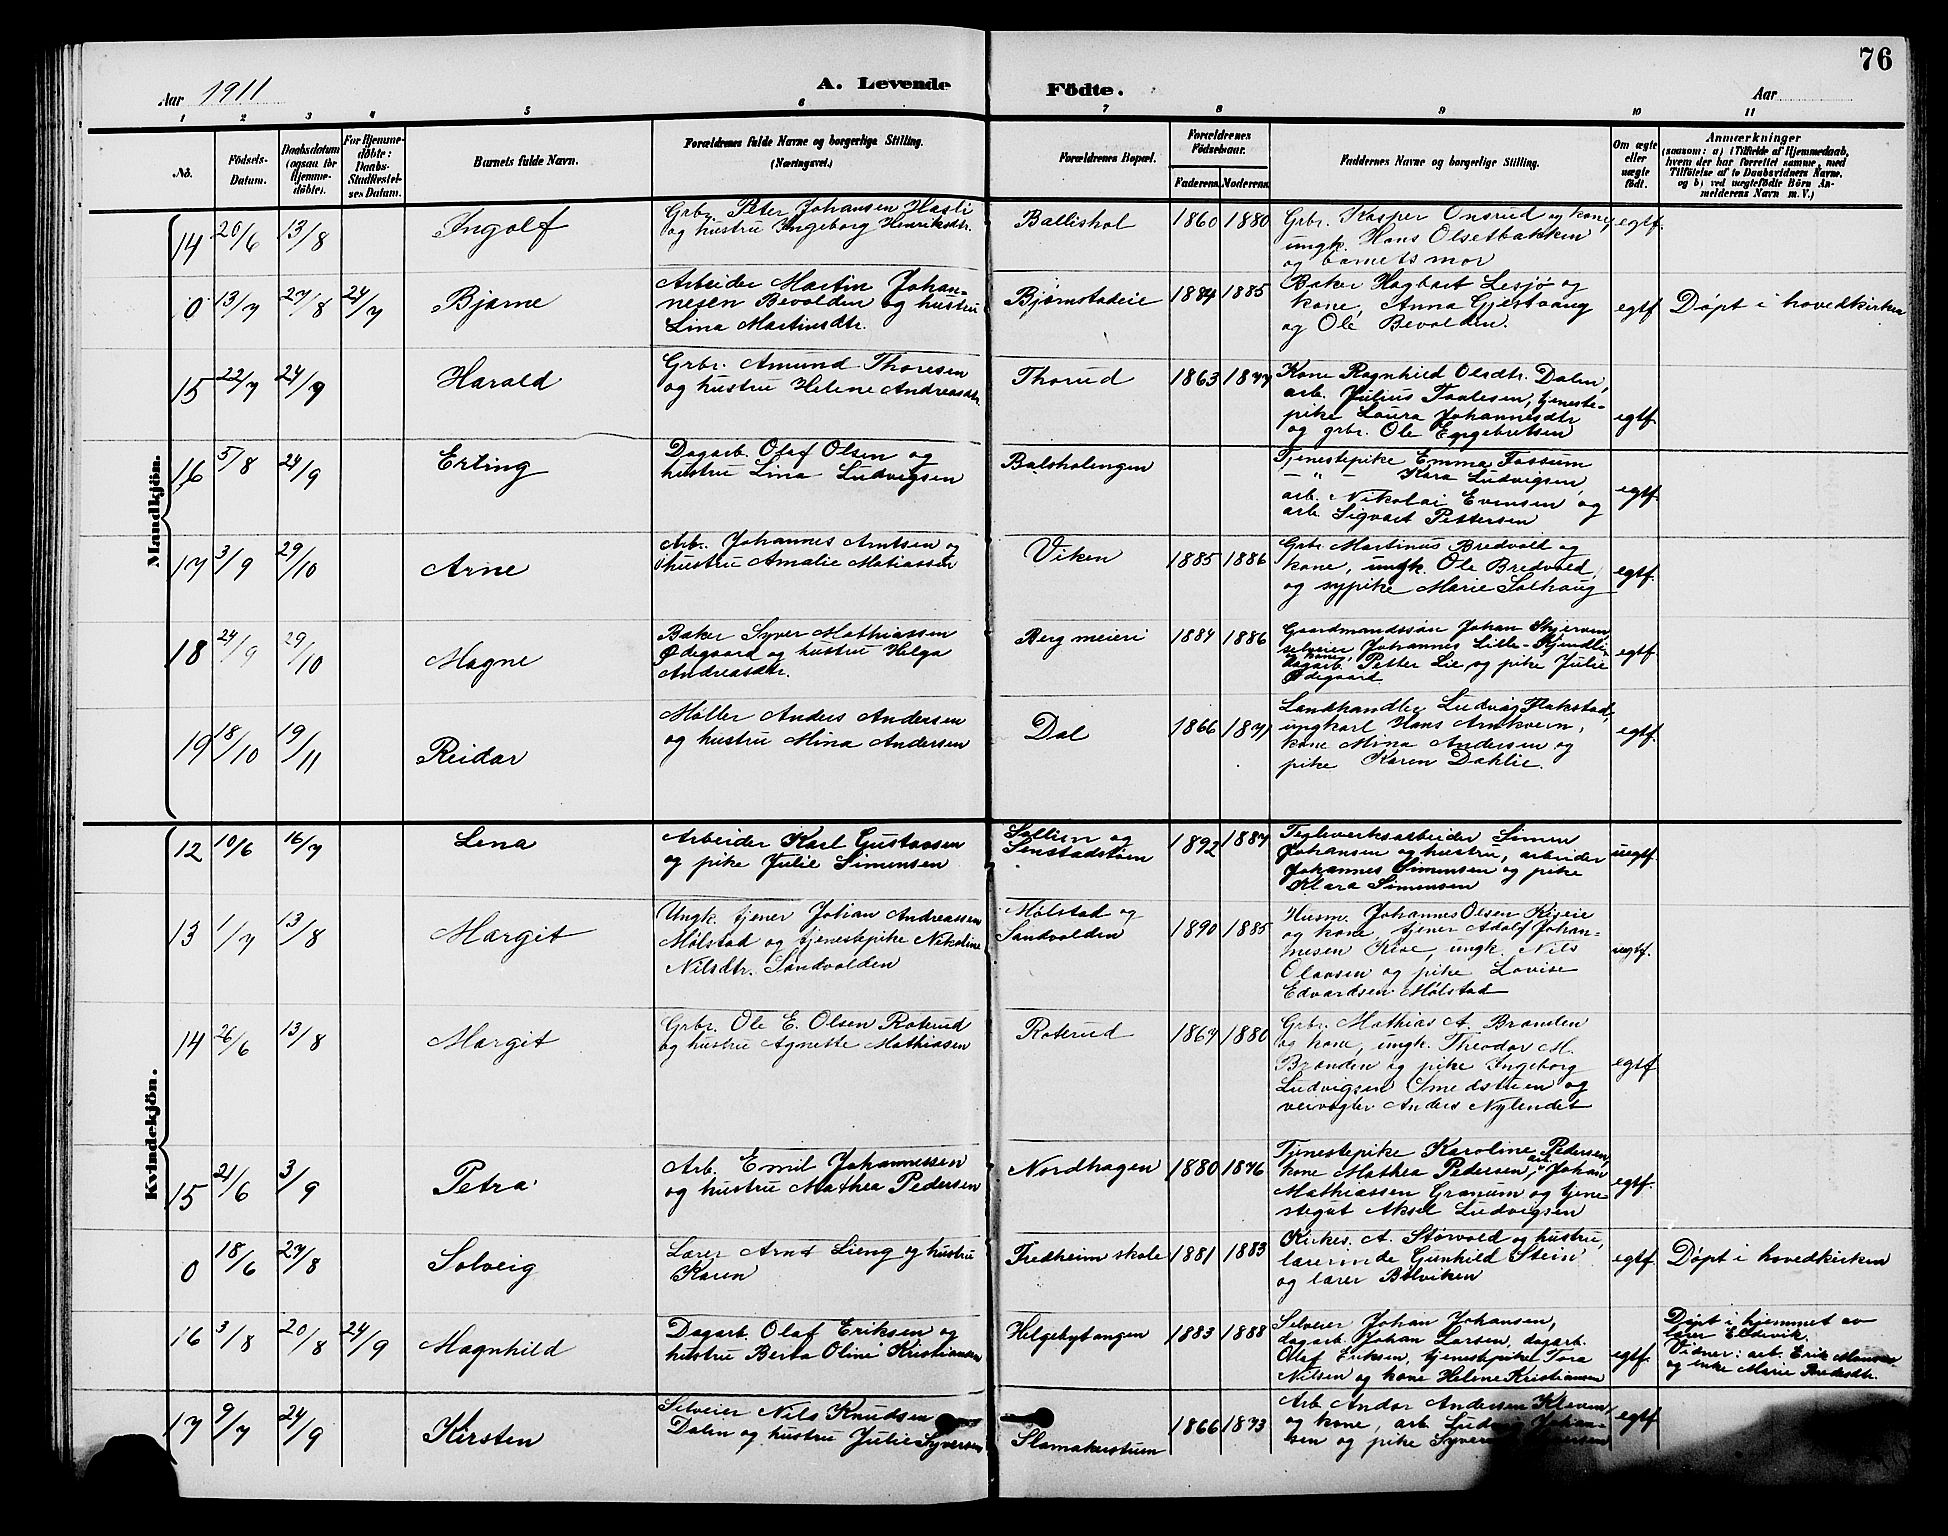 76
Aar 1911
A. Levende
Födte.
Aar
1 2 3 4 5 6 7 8 9 10 11
No.
Födsels-Datum.
Daabsdatum (ogsaa for Hjemmedöbte).
For Hjemmedöbte: Daabs-Stadfæstelses Datum.
Barnets fulde Navn.
Forældrenes fulde Navne og borgerlige Stilling.
(Næringsvei.)
Forældrenes Bopæl.
Forældrenes Födselsaar.
Faderens. Moderens.
Faddernes Navne og borgerlige Stilling.
Om ægte eller uægte födt.
Anmærkninger
(saasom: a) i Tilfælde af Hjemmedaab, hvem der har forrettet samme, med Tilföielse af to Daabsvidners Navne, og b) ved uægtefödte Börn Anmelderens Navn m. V.)
Mandkjön.
14 20/6 13/8 Ingolf
Grbr. Peter Johansen Hasli
og hustru Ingeborg Henriksdtr.
Ballishol 1860 1880
Grbr. Kasper Onsrud og kone,
ungk. Hans Olsetbakken
og barnets mor
egtf.
0 13/7 27/8 24/7 Bjarne
Arbeider Martin Johan-
nesen Bevolden og hustru
Lina Martinsdtr.
Bjørnstadeie 1884 1885
Baker Hagbart Lesjø og
kone, Anna Gjestvang
og Ole Bevolden.
egtf. Døpt i hovedkirken
15 22/7 24/9 Harald
Grbr. Amund Thoresen
og hustru Helene Andreasdtr.
Thorud 1863 1877
Kone Ragnhild Olsdtr. Dalen,
arb. Julius Taalesen, tjeneste-
pike Laura Johannesdtr
og grbr. Ole Engebretsen
egtf.
16 5/8 24/9 Erling
Dagarb. Olaf Olsen og
hustru Lina Ludvigsen
Balsholengen
Tjenestepike Emma Fossum
– " – Kara Ludvigsen,
arb. Nikolai Evensen og
arb. Sigvart Pettersen
egtf.
17 3/9 29/10 Arne
Arb. Johannes Arntsen og
hustru Amalie Matiassen
Viken 1885 1886
Grbr. Martinus Bredvold og
kone, ungk. Ole Bredvold
og sypike Marie Solhaug
egtf.
18 24/9 29/10 Magne
Baker Syver Mathiassen
Ødegaard og hustru Helga
Andreasdtr.
Berg meieri 1884 1886
Gaardmandssøn Johan Skjerven
selveier Johannes Lille-Kjendlie
og kone,
dagarb. Petter Lie og pike Julie
Ødegaard
egtf.
19 18/10 19/11 Reidar
Møller Anders Andersen
og hustru Mina Andersen
Dal 1866 1871
Landhandler Ludvig Hakstad,
ungkarl Hans Arnkvern,
kone Mina Andersen og
pike Karen Dahlie.
egtf.
Kvindekjön.
12 10/6 16/7 Lena
Arbeider Karl Gustavsen
og pike Julie Simensen
Sollien og
1892 1887
Teglverksarbeider Simen
Johansen og hustru, arbeider
Johannes Simensen og pike
Klara Simensen
uegtf.
13 1/7 13/8 Margit
Ungk. tjener Johan Andreassen
Mølstad og tjenestepike Nikoline
Nilsdtr. Sandvolden
Mølstad og
Sandvolden 1890 1885
Husm. Johannes Olsen Kiseie
og kone, tjener Adolf Johan-
nesen Kise, ungk. Nils
Olavsen og pike Lovise
Edvardsen Mølstad
uegtf.
14 26/6 13/8 Margit
Grbr. Ole E. Olsen Roterud
og hustru Agnette Mathiasen
Roterud 1867 1880
Grbr. Mathias A. Branden
og kone, ungk. Theodor M.
Branden og pike Ingeborg
Ludvigsen Smedstuen og
veivogter Anders Nylendet
egtf
15 21/6 3/9 Petra
Arb. Emil Johannessen
og hustru Mathea Pedersen
Nordhagen 1880 1876
Tjenestepike Karoline Pedersen,
kone Mathea Pedersen, arb. Johan
Mathiassen Granum og tjene-
stegut Aksel Ludvigsen
egtf.
0 18/6 27/8 Solveig
Lærer Arnt Lieng og hustru
Karen
Fredheim skole 1881 1883
Kirkes. A. Størvold og hustru,
lærerinde Gunhild Stein
og lærer Bolviken
egtf. Døpt i hovedkirken
16 3/8 20/8 24/9 Magnhild
Dagarb. Olaf Eriksen og
hustru Berta Oline Kristiansen
Helgebytangen 1883 1888
Selveier Johan Johansen,
dagarb. Johan Larsen, dagarb.
Olaf Eriksen, tjenestepike Tora
Nilsen og kone Helene Kristiansen
egtf. Døpt i hjemmet av
lærer Eldevik.
Vidner: arb. Erik
og enke Marie
17 9/7 24/9 Kirsten
Selveier Nils Knudsen
Dalen og hustru Julie Syversen
1866 1873
Arb. Andor Andersen Kleven
og kone, arb. Ludvig Johan-
sen og pike
egtf